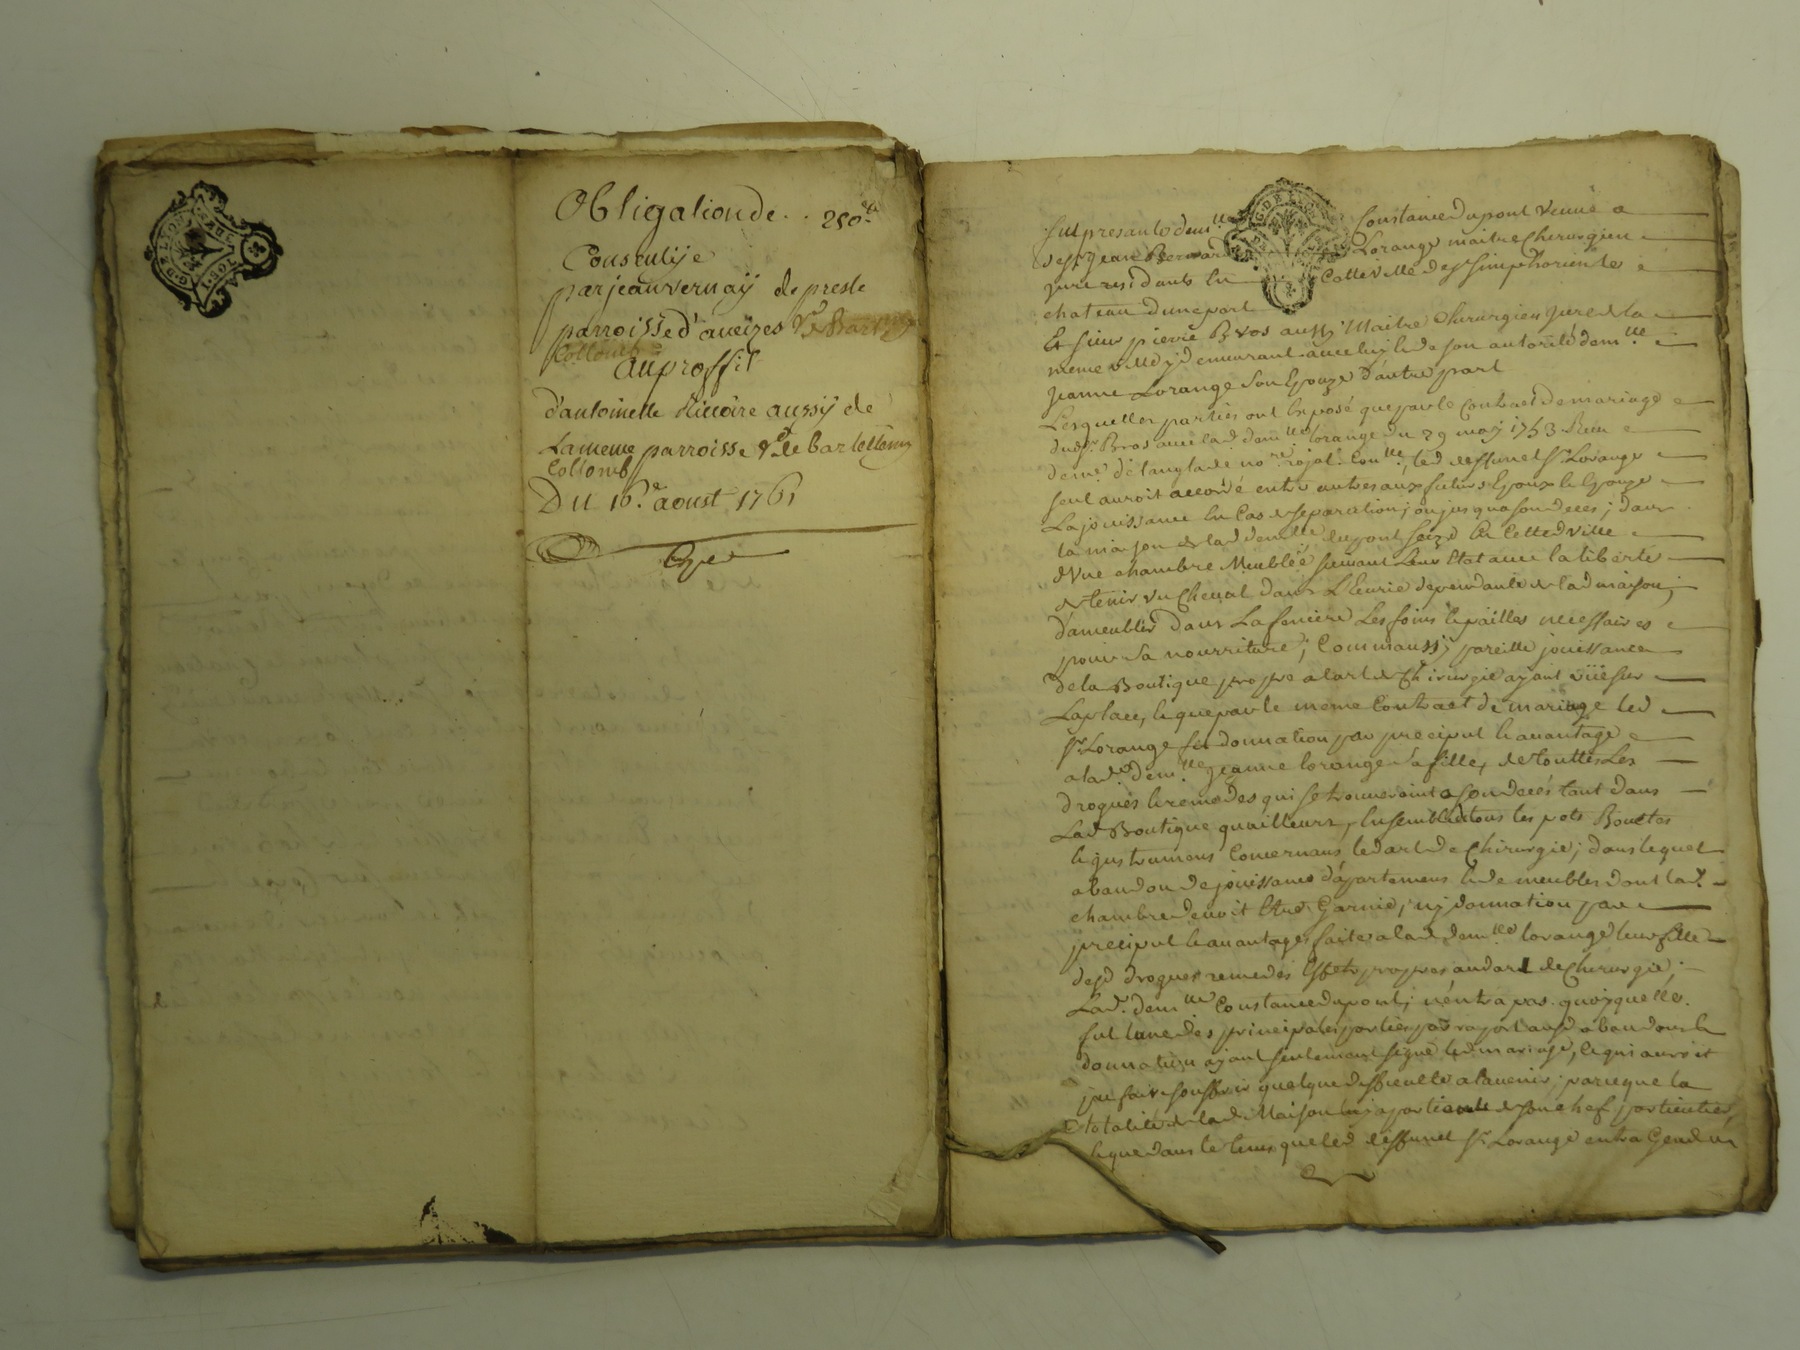 G.D E LION
Obligation de .. 250ᵗᵗ
Consentiye
par jean vernaÿ de presle
parroisse d'aveizes Vᵉ de Bart
Collomb
au proffit
d'antoinette aussÿ de
La meme parroisse Vᵉ de Bartelemy
Collomb
Du 16ᵉ aoust 1761
Expᵉᵉ
G.DE
fut presante demˡˡᵉ Constance dupont veuve a
de sʳ jean Bernard Lorange maitre Chirurgien
juré residante en Cette ville de sᵗ simphorien le
chateau d'une part
Et sieur pierre Bros aussy Maitre Chirurgien juré de la
meme ville y demeurant avec luy & de son autorité demˡˡᵉ
Jeanne Lorange son Epouze d'autre part
Lesquelles parties ont Exposé que par le Contract de mariage
dud sʳ Bros avec lad. demˡˡᵉ lorange du 29 may 1753 Reçu
de mᵉ de langlade noʳᵉ royal led deffunct sʳ Lorange
seul auroit accordé entre autres aux futurs Epoux & Epouze
La jouissance En Cas de separation, ou jusqu'a son deces, dans
la maison de lad demˡˡᵉ dupont scize En Cette d ville
d'une chambre Meublée suivant Leur Etat avec la liberté
de tenir un Cheval dans L'Ecurie dependante de lad maison,
d'ameubler dans La feniere Les foins & pailles necessaires
pour sa nourriture; Comm'aussy pareille jouissance
de la Boutique propre a l'art de Chirurgie ayant vüe sur
La place, & que par le même Contract de mariage led
sʳ Lorange fit donnation par preciput & avantage
a lad. demˡˡᵉ jeanne lorange sa fille, de touttes Les
drogues & remedes qui se trouveroint a son decés tant dans
Lad Boutique qu'ailleurs, Ensemble tous les pots Boettes
& justrumens Concernans led art de Chirurgie; dans lequel
abandon de jouissance d'apartemens & de meubles dont lad.
chambre devoit Etre Garnie, ny donnation par
preciput & avantages faite a lad demˡˡᵉ lorange leur fille
desd drogues remedes Effets propres aud art de Chirurgie;
Lad. demˡˡᵉ Constance dupont, n'entra pas. quoyqu'elle.
fut l'une des principales parties par raport aud abandon &
donnation ayant seulement signé led mariage, & qui auroit
pu faire souffrir quelque difficulté a l'avenir; parceque la
totalité de lad Maison luy apartient de son chef particulier,
& que dans le tems que led deffunct sʳ Lorange entra Gendre